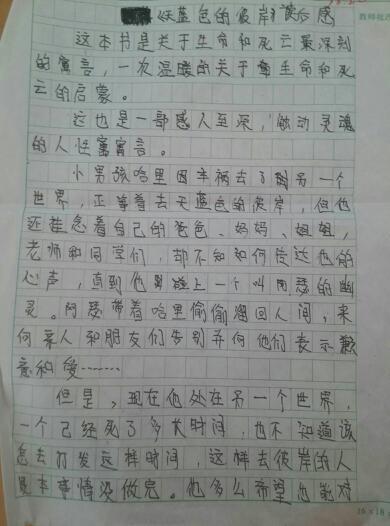 《天蓝色的彼岸》读后感
这本书是关于生命和死亡最深刻
的寓言,一次温暖的关于生命和死
亡的启蒙。
这也是一部感人至深,触动灵魂
的人性寓言。
小男孩哈里因车祸去了另一个
世界,正等着去天蓝色的彼岸,但他
还挂念着自己的爸爸、妈妈、姐姐,
老师和同学们,却不知如何传达他的
心声,直到他碰上一个叫阿瑟的幽
灵。阿瑟带着哈里偷偷溜回人间,来
向亲人和朋友们告别并向他们表示歉
意和爱……
但是,现在他处在另一个世界,
一个已经死了多长时间,也不知道该
怎去打发这样时间,这样去彼岸的人
是本事情没做完。他多么希望他能对
16×18